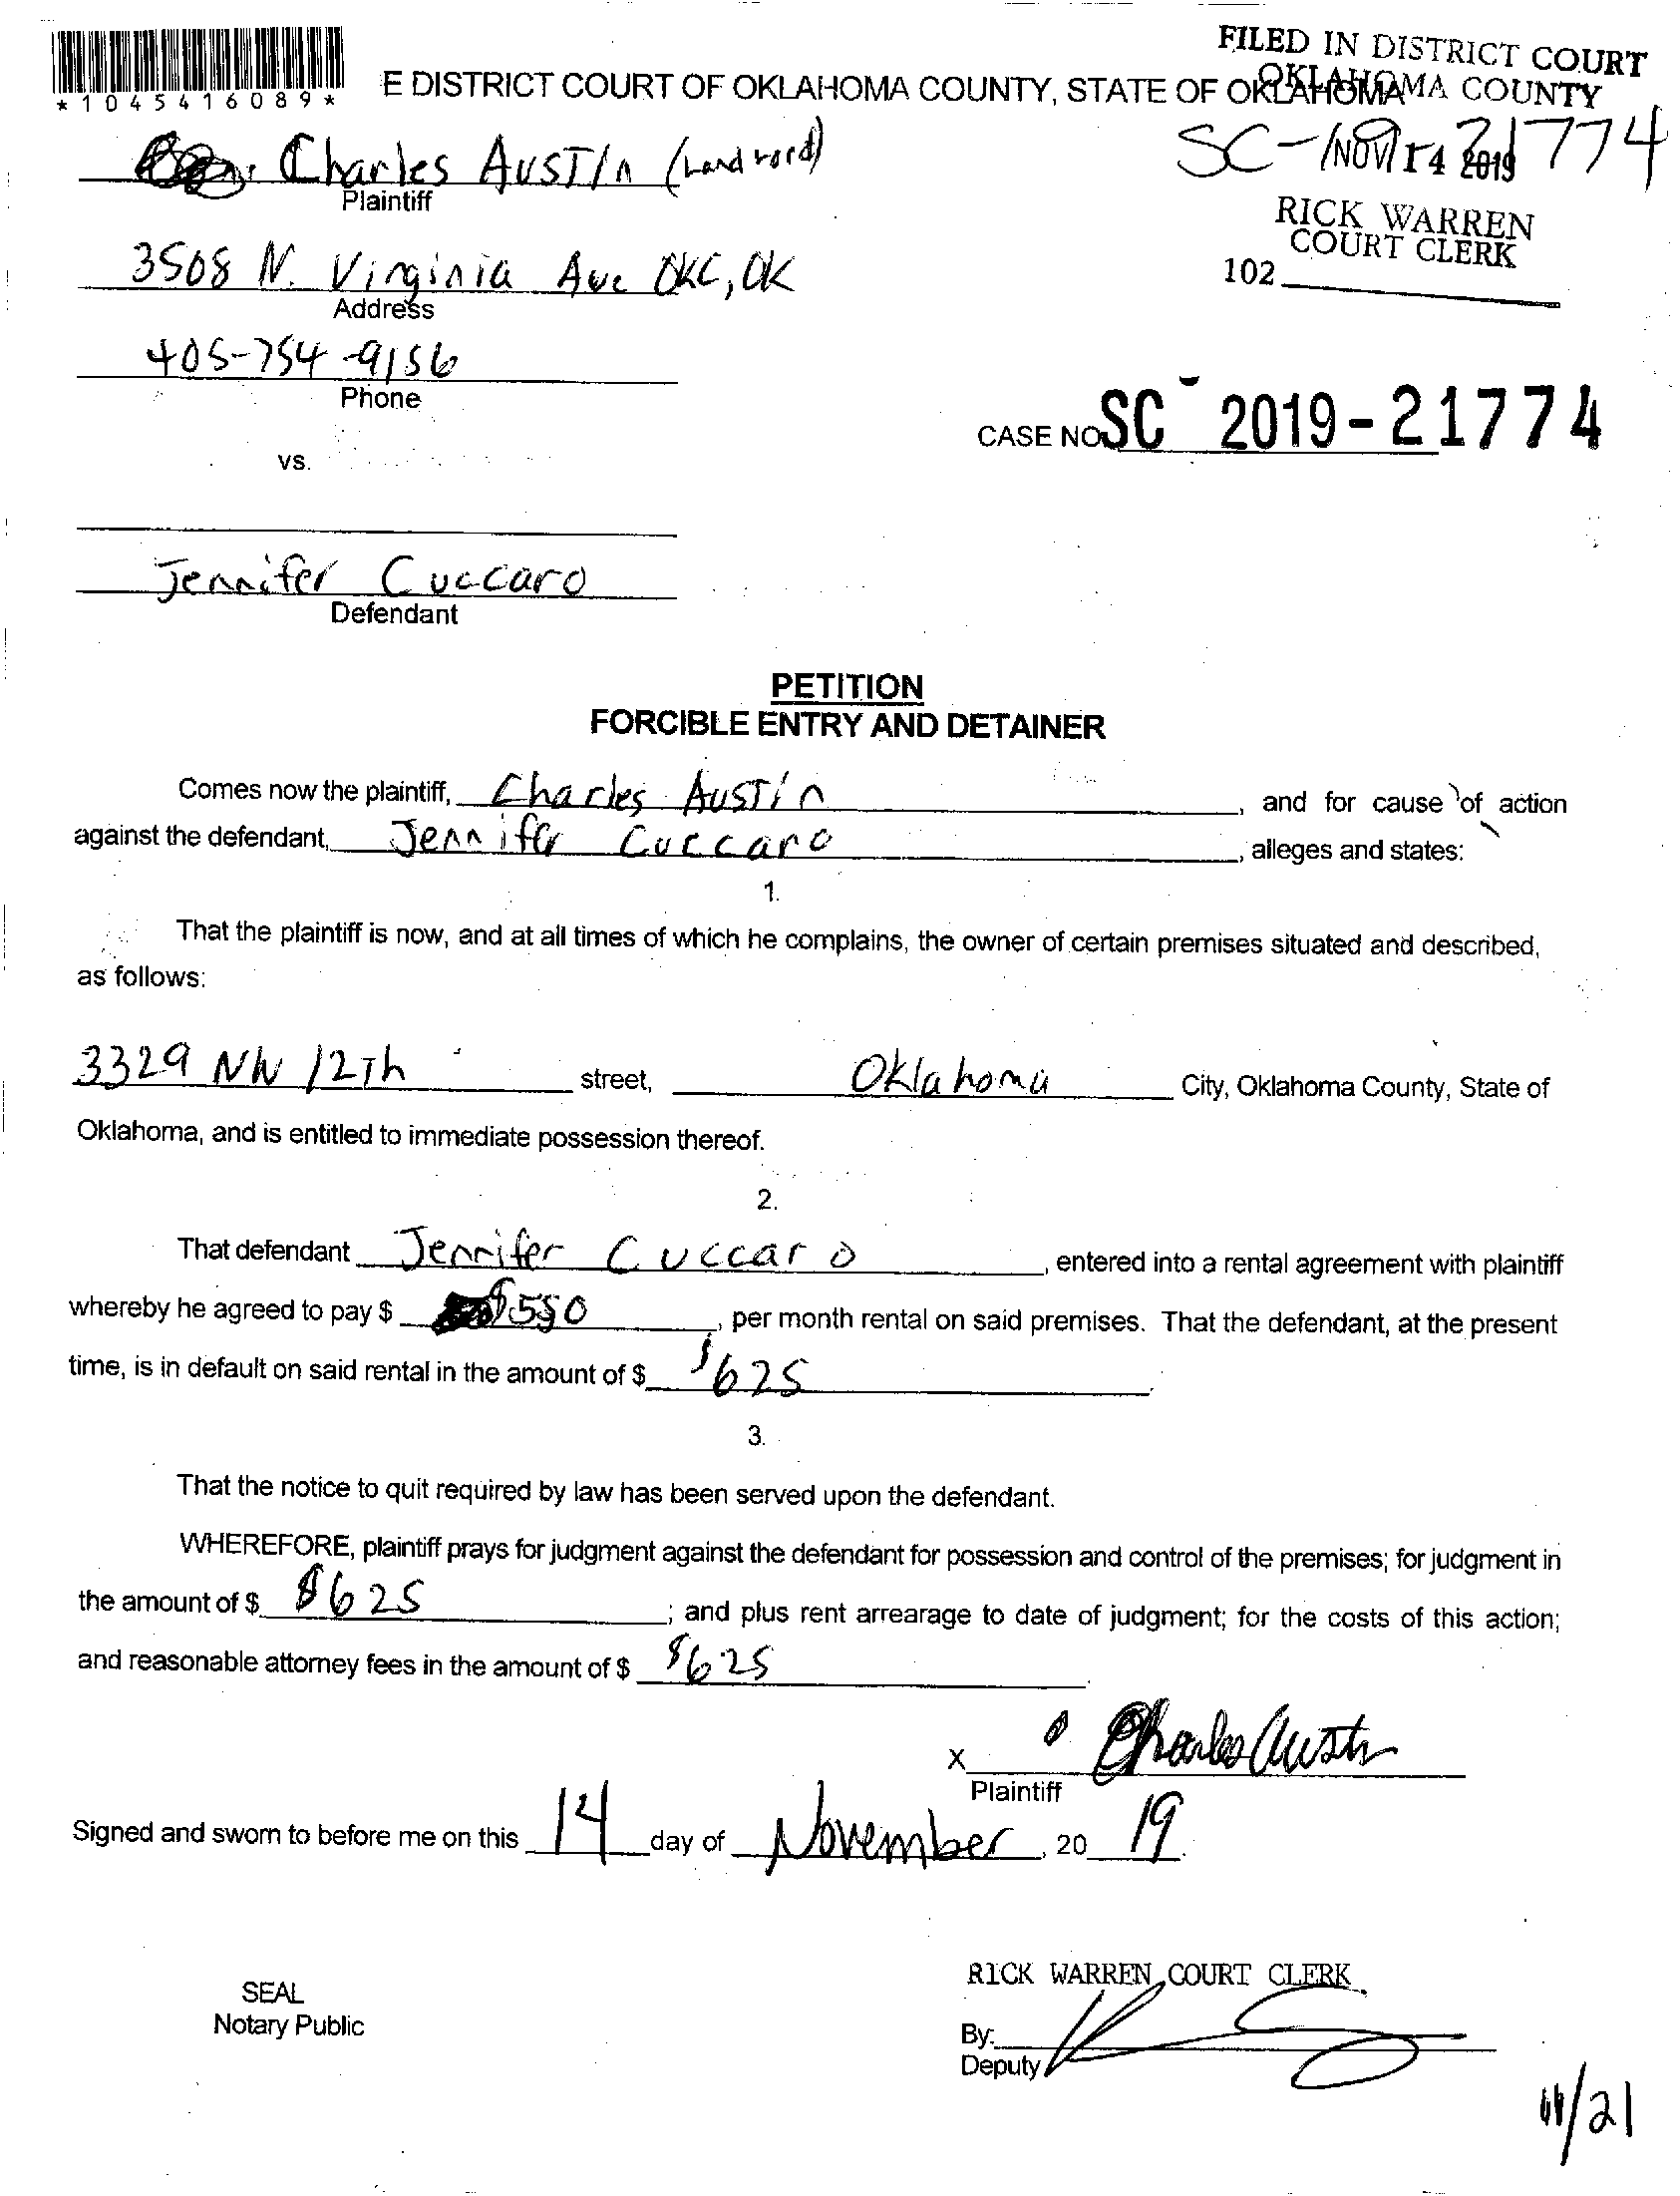 *1045416089*
E DISTRICT COURT OF OKLAHOMA COUNTY, STATE OF OKLAHOMA
FILED IN DISTRICT COURT
OKLAHOMA COUNTY
Charles AUSTIn (Landlord)
Plaintiff
SC-19-21774
NOV 14 2019
RICK WARREN
COURT CLERK
3508 N. Virginia Ave OKC, OK
Address
102
405-754-9156
Phone
CASE NO. SC 2019-21774
vs.
Jennifer Cuccaro
Defendant
PETITION
FORCIBLE ENTRY AND DETAINER
Comes now the plaintiff, Charles AUSTIn, and for cause of action
against the defendant, Jennifer Cuccaro, alleges and states:
1.
That the plaintiff is now, and at all times of which he complains, the owner of certain premises situated and described,
as follows:
3329 NW 12Th street, Oklahoma City, Oklahoma County, State of
Oklahoma, and is entitled to immediate possession thereof.
2.
That defendant Jennifer Cuccaro, entered into a rental agreement with plaintiff
whereby he agreed to pay $ $550, per month rental on said premises. That the defendant, at the present
time, is in default on said rental in the amount of $ $625.
3.
That the notice to quit required by law has been served upon the defendant.
WHEREFORE, plaintiff prays for judgment against the defendant for possession and control of the premises; for judgment in
the amount of $ $625; and plus rent arrearage to date of judgment; for the costs of this action;
and reasonable attorney fees in the amount of $ $625.
X Charles Austin
Plaintiff
Signed and sworn to before me on this 14 day of November, 20 19.
RICK WARREN, COURT CLERK
SEAL
Notary Public
By:
Deputy
11/21